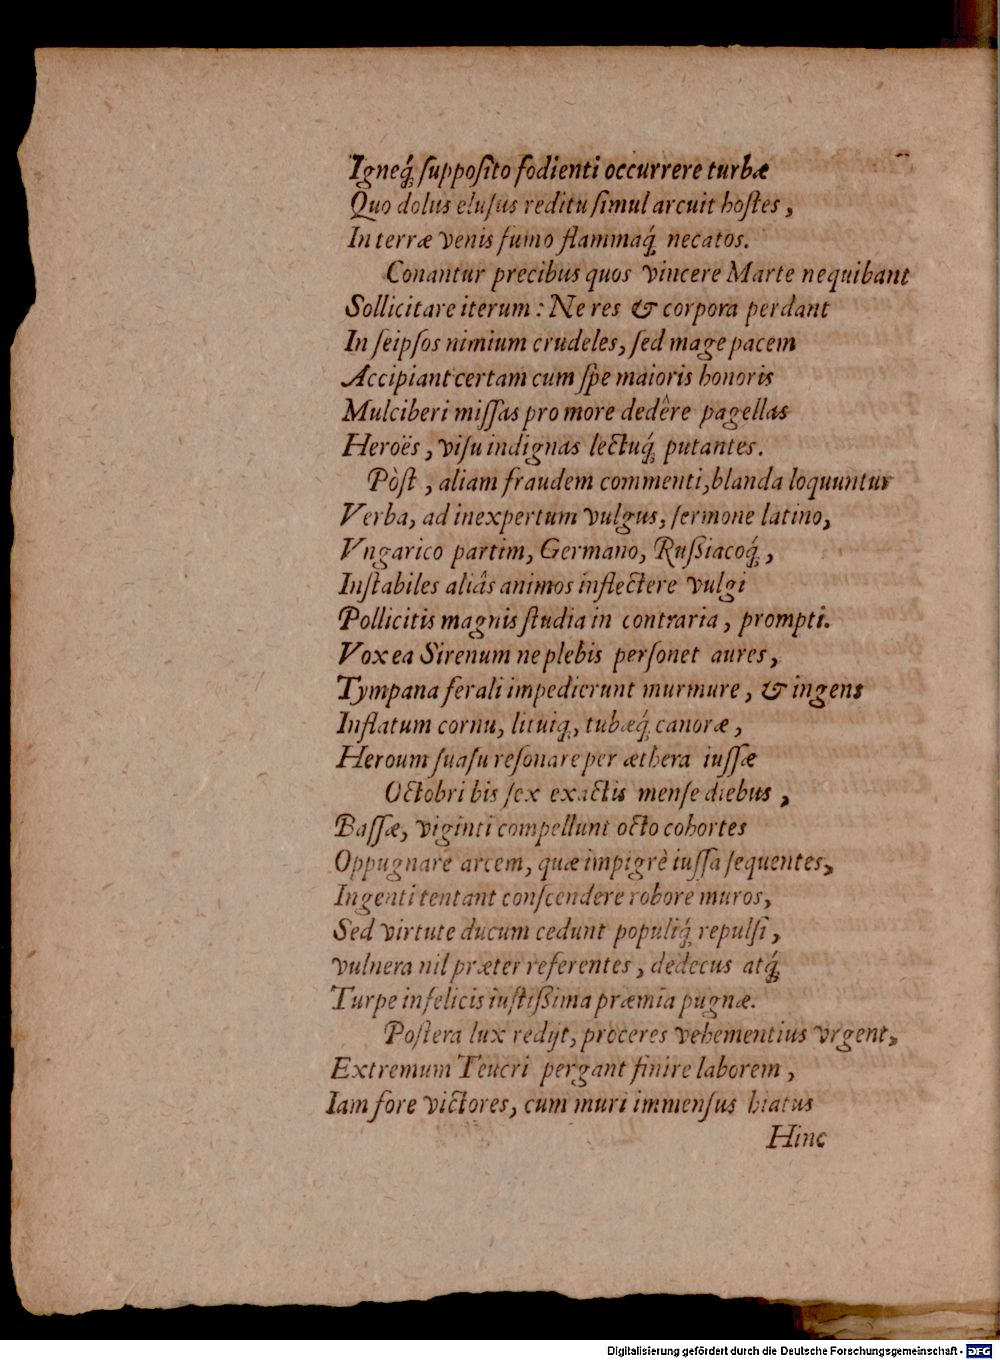 Igneq́; ſuppoſito fodienti occurrere turbæ
Quo dolus eluſus reditu ſimul arcuit hoſtes,
In terræ venis fumo flammaq́; necatos.
Conantur precibus quos vincere Marte nequibant
Sollicitare iterum: Ne res & corpora perdant
In ſeipſos nimium crudeles, ſed mage pacem
Accipiant certam cum ſpe maioris honoris
Mulciberi miſſas pro more dedêre pagellas
Heroës, viſu indignas lectuq́; putantes.
Pòſt, aliam fraudem commenti, blanda loquuntur
Verba, ad inexpertum vulgus, ſermone latino,
Vngarico partim, Germano, Ruſſiacoq́;,
Inſtabiles aliâs animos inflectere vulgi
Pollicitis magnis ſtudia in contraria, prompti.
Vox ea Sirenum ne plebis perſonet aures,
Tympana ferali impedierunt murmure, & ingens
Inflatum cornu, lituiq;, tubæq́; canoræ,
Heroum ſuaſu reſonare per æthera iuſſæ
Octobri bis ſex exactis menſe diebus,
Baſſæ, viginti compellunt octo cohortes
Oppugnare arcem, quæ impigrè iuſſa ſequentes,
Ingenti tentant conſcendere robore muros,
Sed virtute ducum cedunt populiq́; repulſi,
vulnera nil præter referentes, dedecus atq́;
Turpe infelicis iuſtiſſima præmia pugnæ.
Poſtera lux redijt, proceres vehementius vrgent,
Extremum Teucri pergant finire laborem,
Iam fore victores, cum muri immenſus hiatus
Hinc
Digitalisierung gefördert durch die Deutsche Forschungsgemeinschaft - DFG